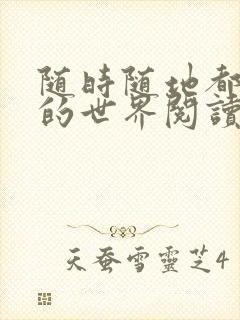 随時随地都
的世界閱讀
天蚕雪靈芝4